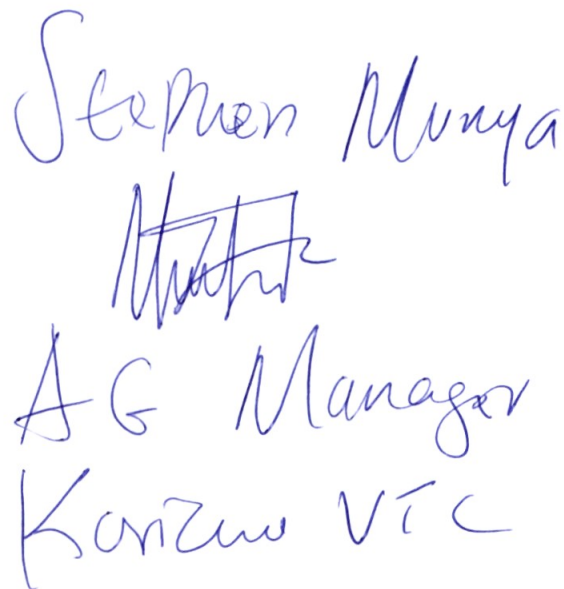 Stephen Munya
AG Manager
VTC